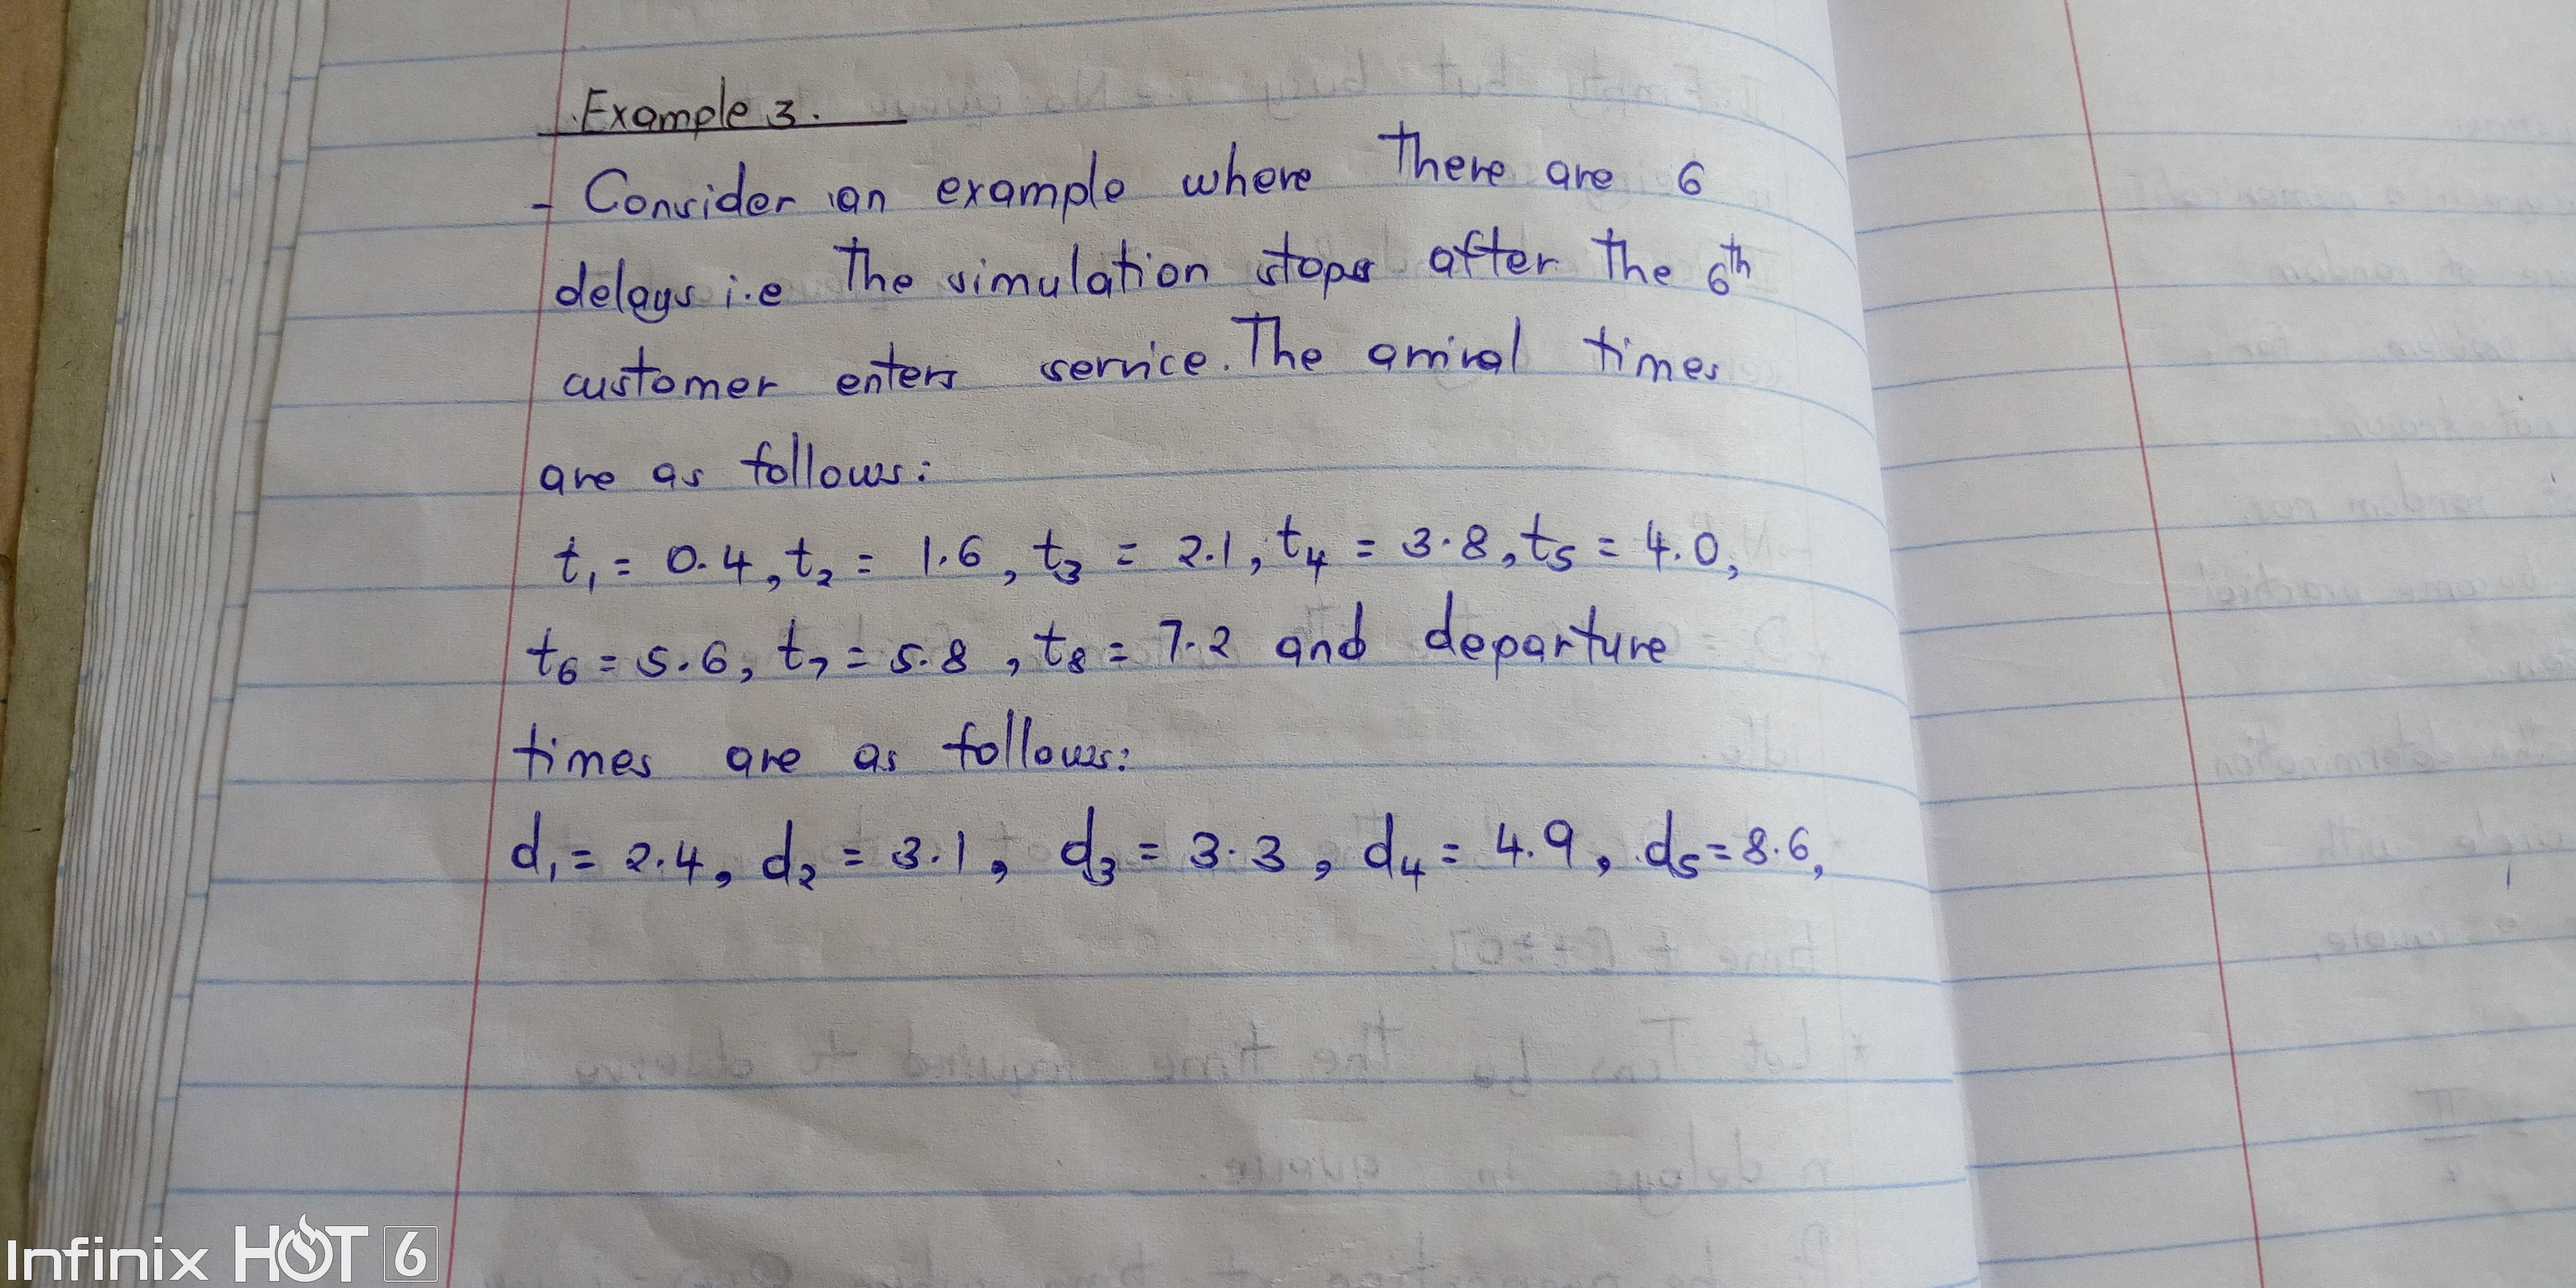 Example 3.
- Consider an example where There are 6
delays i.e The simulation stops after The 6th
customer enters service. The arrival times
are as follows:
t1 = 0.4, t2 = 1.6, t3 = 2.1, t4 = 3.8, t5 = 4.0,
t6 = 5.6, t7 = 5.8, t8 = 7.2 and departure
times are as follows:
d1 = 2.4, d2 = 3.1, d3 = 3.3, d4 = 4.9, d5 = 8.6,
Infinix HOT 6